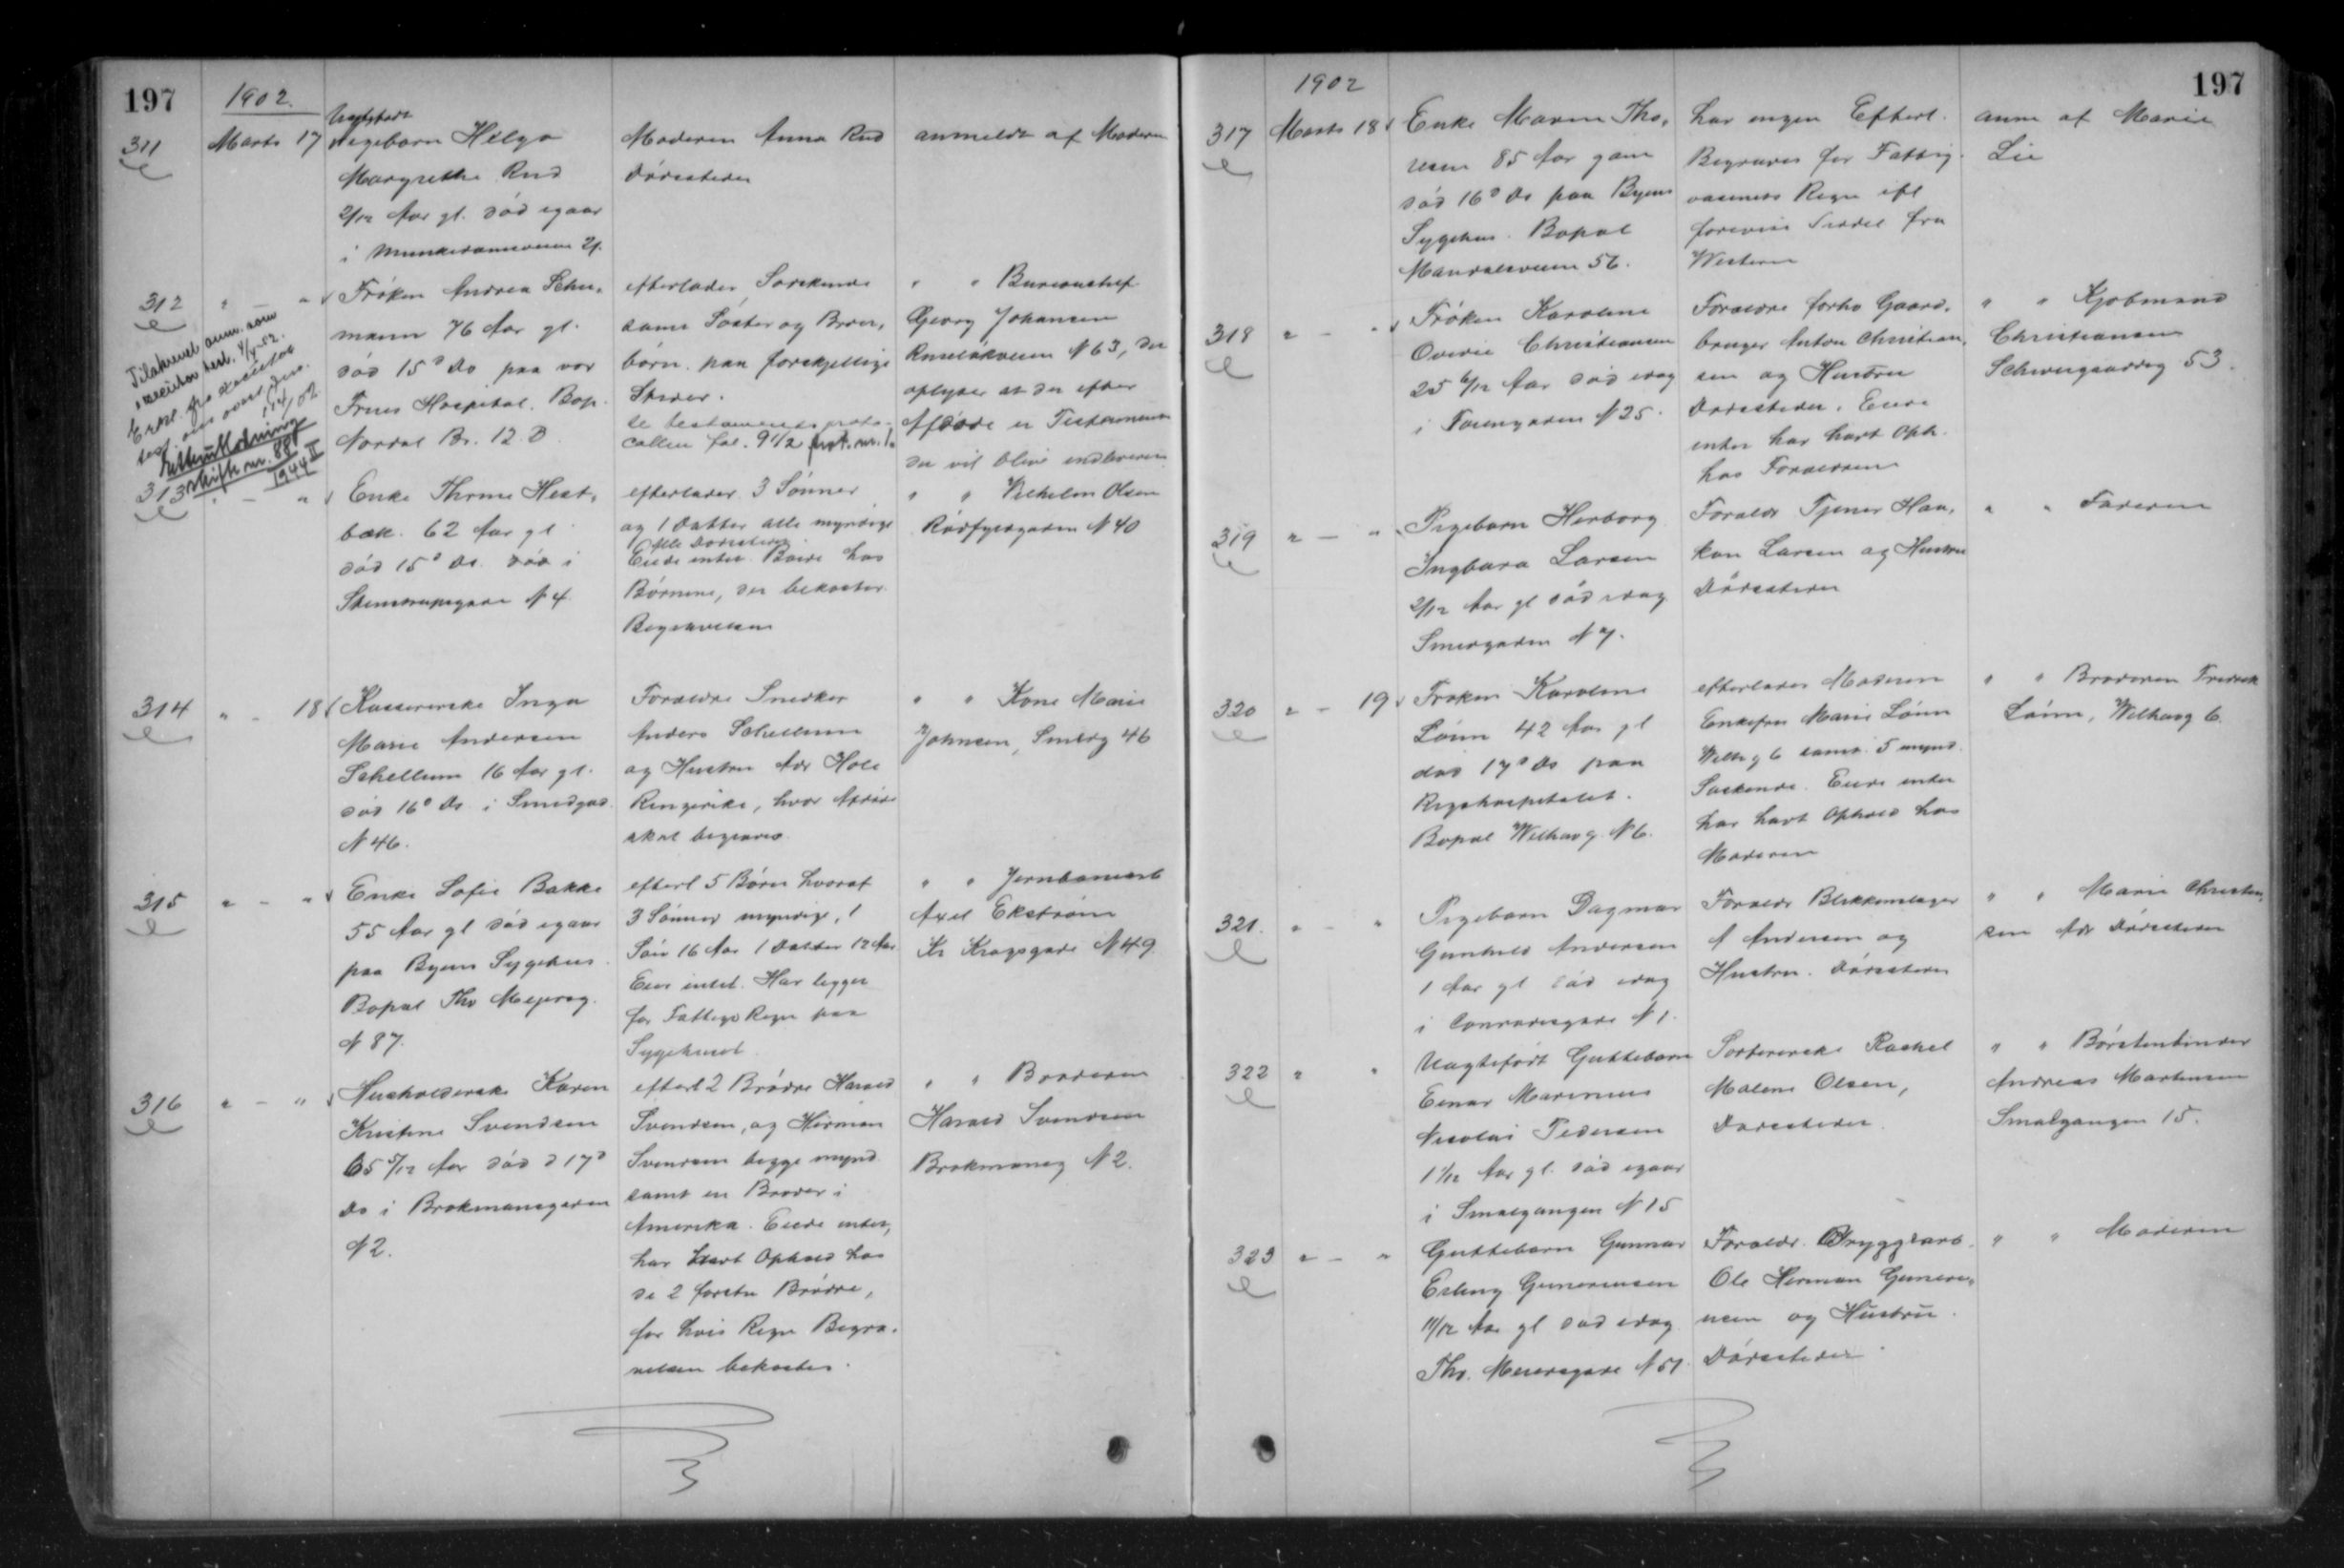 197
1902.
311
Marts 17
Uægtefødt
Pigebarn Helga
Margrethe Rud
2/12 Aar gl. død igaar
i Munkedamsveien 21.
Moderen Anna Rud
Dødsstedet
anmeldt af Moderen
312
" — "
Frøken Andrea Schu-
mann 76 Aar gl.
død 15d Ds paa vor
Frues Hospital. Bop.
Nordal Br. 12 B
efterlader Søskende
samt Søster og Broer-
børn paa forskjellige
Steder.
Se testamentsproto-
collen fol. 912 prot. nr. 1.
" " Bureauchef
Georg Johansen
Ruseløkveien N 63, der
oplyser at der efter
Afdøde er Testamente
der vil blive indleveret
Tilakneud anm. som
executor test. 4/4-02.
Erkl. fra executor
test. om overtagn.
14/02
Etterutlodning
skifte nr. 88
1944 II
313
" — "
Enke Thrine Hest-
bæk. 62 Aar gl
død 15d Ds. død i
Stenstrupsgade N 4.
efterlader 3 Sønner
og 1 Datter alle myndige
Alle Dødsstedet
Eiede intet. Boede hos
Børnene, der bekoster
Begravelsen
" " Vilhelm Olsen
Rødfyldgaden N 40
314
" - 18
Kassererske Inga
Marie Andersen
Schellum 16 Aar gl.
død 16d Ds. i Smedgad
N 46.
Forældre Snedker
Anders Schellum
og Hustru Adr Hole
Ringerike, hvor Afdøde
skal begraves.
" " Kone Marie
Johnsen, Smedg 46
315
" - "
Enke Sofie Bakke
55 Aar gl død igaar
paa Byens Sygehus.
Bopæl Thv Meyersg.
N 87.
efterl 5 Børn hvoraf
3 Sønner myndige, 1
Søn 16 Aar 1 Datter 12 Aar
Eier intet. Har ligget
for Fattigv Regn paa
Sygehuset
" " Jernbanearb
Axel Ekstrøm
Kr Krogsgade N 49
316
" - "
Husholderske Karen
Kristine Svendsen
65 5/12 Aar død d 17d
Ds i Brokmansgaden
N 2.
efterl 2 Brødre Harald
Svendsen, og Herman
Svendsen begge mynd
samt en Broder i
Amerika. Eiede intet,
har havt Ophold hos
de 2 første Brødre,
for hvis Regn Begra-
velsen bekostes.
" " Broderen
Harald Svendsen
Brokmansg N 2.
197
1902
317
Marts 18
Enke Maren Tho-
resen 85 Aar gam
død 16d Ds paa Byens
Sygehus. Bopæl
Maridalsveien 56.
har ingen Efterl.
Begraves for Fattig-
væsenets Regn ifl
forevist Seddel fra
Western
anm af Marie
Lie
318
" - "
Frøken Karoline
Ovidie Christiansen
25 6/12 Aar død idag
i Torvgaden N 25.
Forældre forhv Gaard-
bruger Anton Christian-
sen og Hustru
Dødsstedet. Eiede
intet har havt Oph.
hos Forældrene
" " Kjøbmand
Christiansen
Schweigaardsg 53.
319
" — "
Pigebarn Herborg
Ingbora Larsen
2/12 Aar gl død idag
Smedgaden N 7.
Forældr Tjener Haa-
kon Larsen og Hustru
Dødsstedet
" " Faderen
320
" - 19
Frøken Karoline
Lønn 42 Aar gl
død 17d Ds paa
Rigshospitalet.
Bopæl Welhavg. N 6.
efterlader Moderen
Enkefru Marie Lønn
Welhg 6 samt 5 mynd.
Søskende. Eiede intet
har havt Ophold hos
Moderen
" " Broderen Fredrik
Lønn, Welhavg 6.
321.
" - "
Pigebarn Dagmar
Gunhild Andersen
1 Aar gl død idag
i Conradisgade N 1.
Forældr Blikkenslager
A Andersen og
Hustru. Dødsstedet
" " Marie Christen-
sen Adr Dødsstedet
322
" "
Uægtefødt Guttebarn
Einar Marinius
Nicolai Pedersen
1 1/12 Aar gl. død igaar
i Smalgangen N 15
Sorterske Rachel
Malene Olsen,
Dødsstedet.
" " Børstenbinder
Andreas Martinsen
Smalgangen 15.
323
" — "
Guttebarn Gunnar
Erling Gunerensen
11/12 Aar gl død idag
Thv. Meiersgade N 51.
Forældr. Bryggearb.
Ole Herman Gunere-
nsen og Hustru.
Dødsstedet
" " Moderen